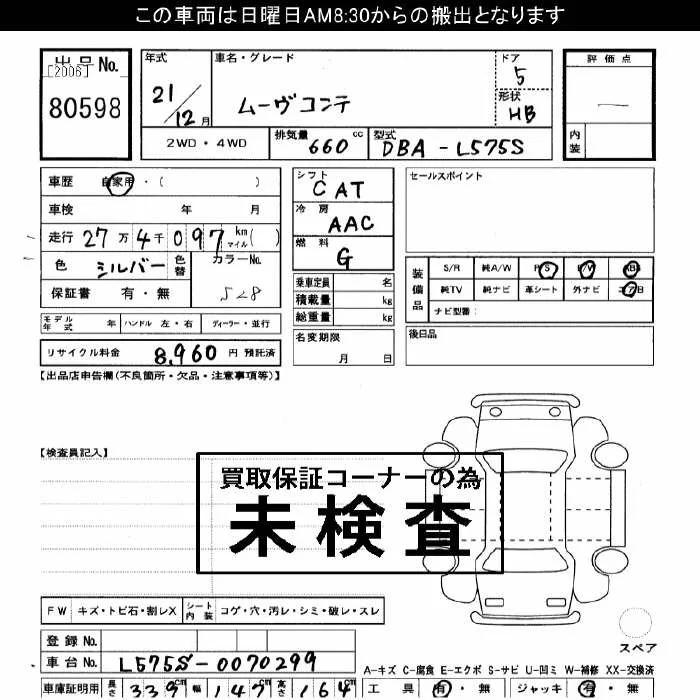 この車両は日曜日AM8:30からの搬出となります
出品No.
[2006]
80598
年式 21/12月
車名・グレード
ムーヴコンテ
ドア 5
形状 HB
評価点
—
内装
2WD・4WD
排気量 660 cc
型式 DBA-L575S
車歴 自家用・( )
車検 年 月
走行 27万4千097 km マイル( )
色 シルバー 色替 カラーNo. S28
保証書 有・無
モデル年式 年 ハンドル 左・右 ディーラー・並行
リサイクル料金 8,960 円 預託済
シフト CAT
冷房 AAC
燃料 G
乗車定員 名
積載量 kg
総重量 kg
名変期限
月 日
セールスポイント
装備品
S/R 純A/W P/S P/W ABS
純TV 純ナビ 革シート 外ナビ エアB
ナビ型番:
後日品
【出品店申告欄(不良箇所・欠品・注意事項等)】
【検査員記入】
買取保証コーナーの為
未検査
FW キズ・トビ石・割レX シート内装 コゲ・穴・汚レ・シミ・破レ・スレ
登録No.
車台No. L575S-0070299
車庫証明用 長さ 339cm 幅 147cm 高さ 164cm
スペア
A-キズ C-腐食 E-エクボ S-サビ U-凹ミ W-補修 XX-交換済
工具 有・無 ジャッキ 有・無